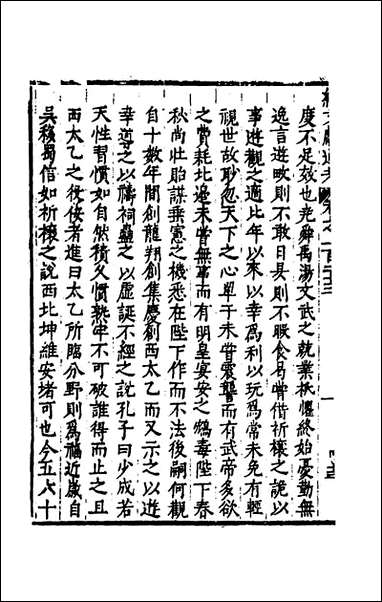 度不足效也堯舜禹湯文武之就業秪懼終始憂勤無
逸言遊畋則不敢日昃則不暇食曷嘗借祈禳之詭以
事遊觀之適比年以來以幸爲利以玩爲常未免有輕
視世故眇忽天下之心單于未嘗震讋而有武帝多欲
之費耗北邊未嘗無事而有明皇宴安之鴆毒陛下春
秋尚壯貽謀垂憲之機悉在陛下作而不法後嗣何觀
自十數年間創龍翔創集慶創西太乙而又示之以遊
幸導之以禱祠蠱之以虛誕不經之說孔子曰少成若
天性習慣如自然積久慣熟牢不可破誰得而止之且
西太乙之役佞者進曰太乙所臨分野則爲福近歲自
吳移蜀信如祈禳之說西北坤維安堵可也今五六十